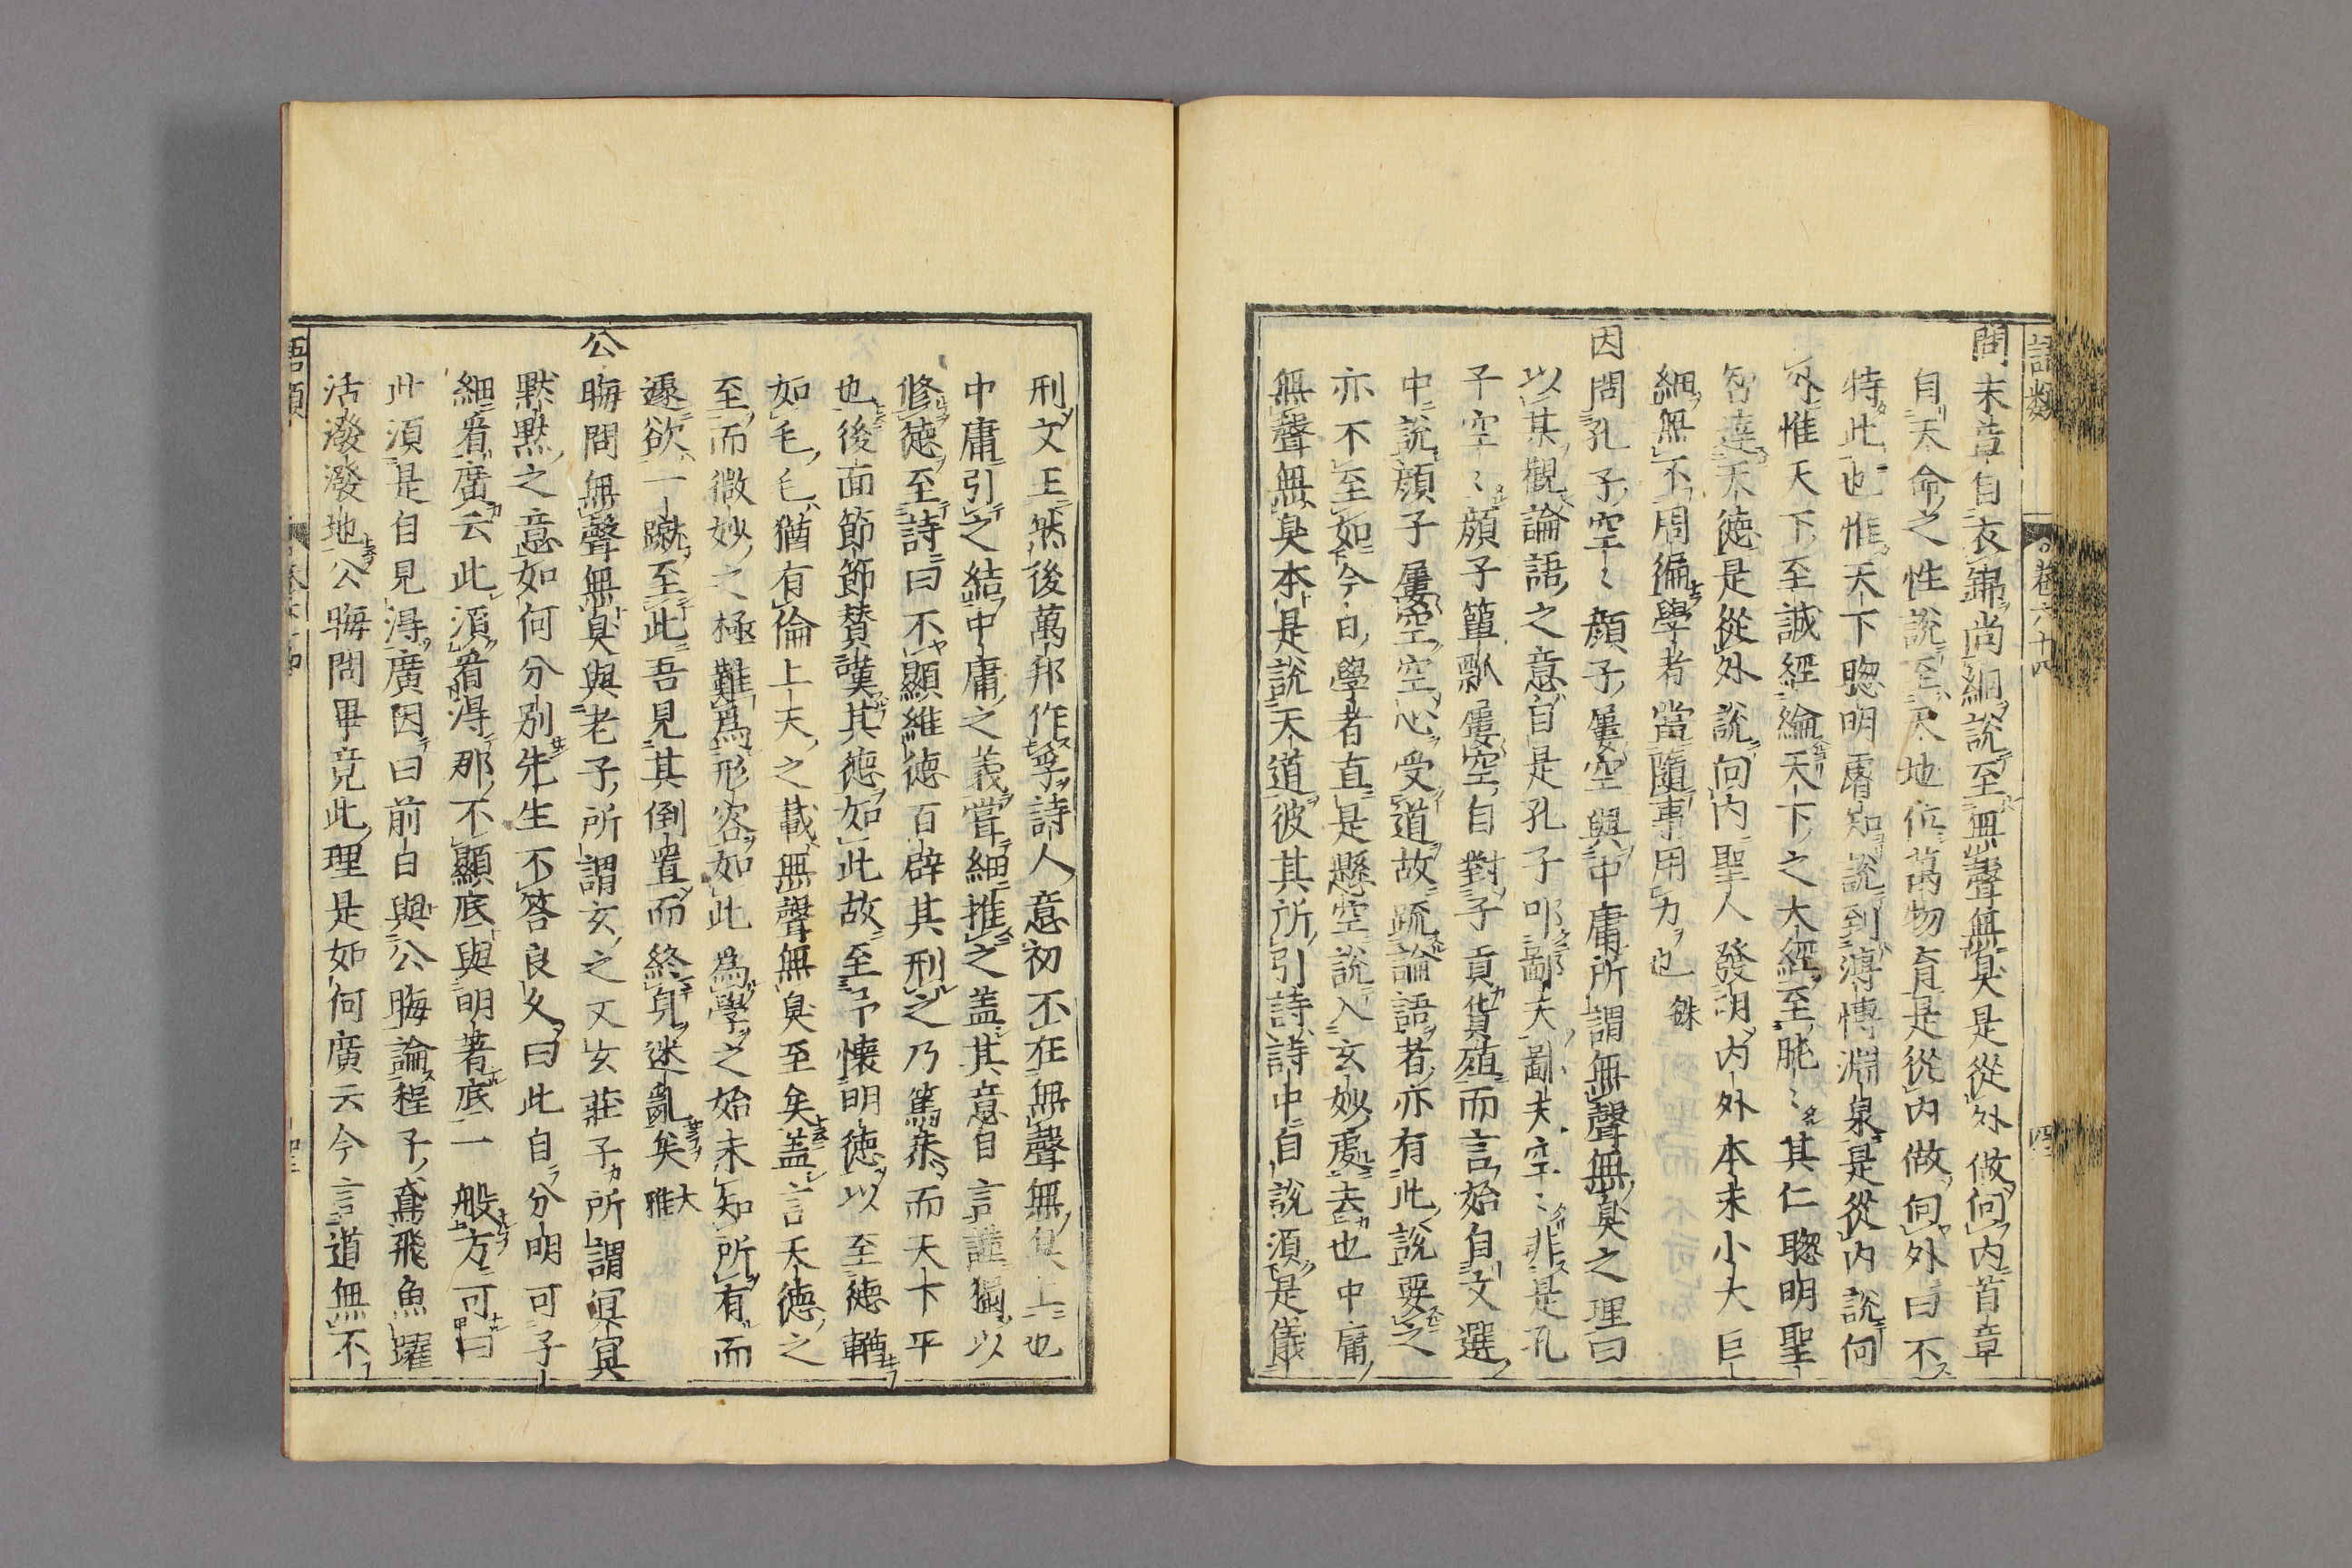 語類
卷六十四
問末章自衣錦尚絅說至無聲無臭是從外做向內首章
自天命之性說至天地位萬物育是從內做向外曰不
特此也惟天下聦明睿知說到溥愽淵泉是從內說向
外惟天下至誠經綸天下之大經至肫〻其仁聦明聖
知達天德是從外說向內聖人發明內外本末小大巨
細無不周徧學者當隨事用力也 銖
因問孔子空〻顏子屢空與中庸所謂無聲無臭之理曰
以某觀論語之意自是孔子叩鄙夫鄙夫空〻非是孔
子空〻顏子簞瓢屢空自對子貢貨殖而言始自文選
中說顏子屢空空心受道故疏論語者亦有此說要之
亦不至如今日學者直是懸空說入玄妙處去也中庸
無聲無臭本是說天道彼其所引詩詩中自說須是儀
刑文王然後萬邦作孚詩人意初不在無聲無臭上也
中庸引之結中庸之義嘗細推之盖其意自言謹獨以
修德至詩曰不顯維德百辟其刑之乃篤恭而天下平
也後面節節賛嘆其德如此故至予懷明德以至德輶
如毛毛猶有倫上天之載無聲無臭至矣盖言天德之
至而微妙之極難為形容如此為學之始未知所有而
遽欲一蹴至此吾見其倒置而終身迷亂矣 大雅
公晦問無聲無臭與老子所謂玄之又玄莊子所謂冥冥
黙黙之意如何分別先生不答良乆曰此自分明可子
細看廣云此須看得那不顯底與明著底一般方可曰
此須是自見得廣因曰前日與公晦論程子鳶飛魚躍
活潑潑地公晦問畢竟此理是如何廣云今言道無不